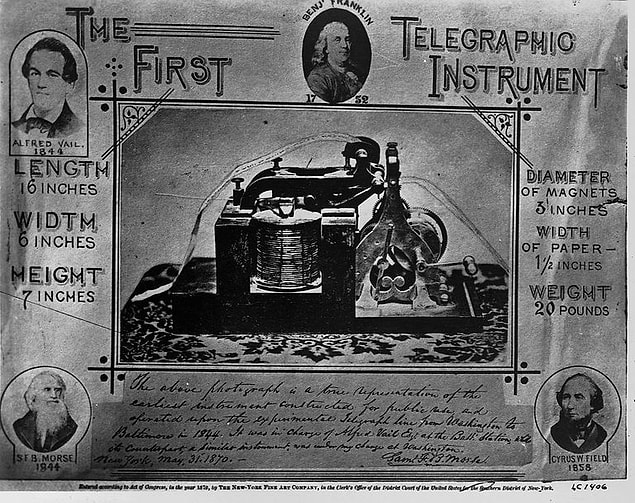 THE FIRST
BENJ. FRANKLIN
1752
TELEGRAPHIC
INSTRUMENT
ALFRED VAIL.
1844
LENGTH
16 INCHES
WIDTH
6 INCHES
HEIGHT
7 INCHES
DIAMETER
OF MAGNETS
3 INCHES
WIDTH
OF PAPER —
1½ INCHES
WEIGHT
20 POUNDS
S.F.B. MORSE
1844
CYRUS W. FIELD
1858
The above photograph is a true representation of the
earliest instrument constructed for public use, and
operated upon the experimental Telegraph line from Washington to
Baltimore in 1844. It was in charge of Alfred Vail Esq. at the Balt. Station, and
its Counterpart, a similar instrument, was under my charge at Washington.
New York, May, 31. 1870. — Saml. F. B. Morse.
Entered according to Act of Congress, in the year 1872, by THE NEW-YORK FINE ART COMPANY, in the Clerk's Office of the District Court of the United States for the Southern District of New-York.
LC 1406